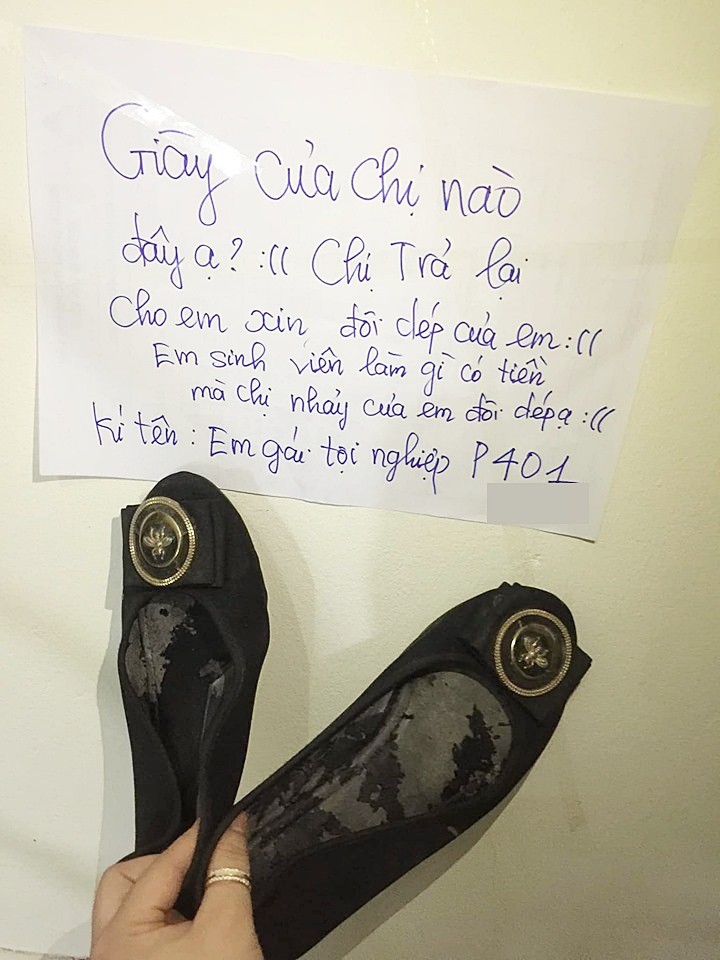 Giày của chị nào
đây ạ? :(( Chị Trả lại
cho em xin đôi dép của em :((
Em sinh viên làm gì có tiền
mà chị nhảy của em đôi dép ạ :((
Kí tên : Em gái tội nghiệp P401